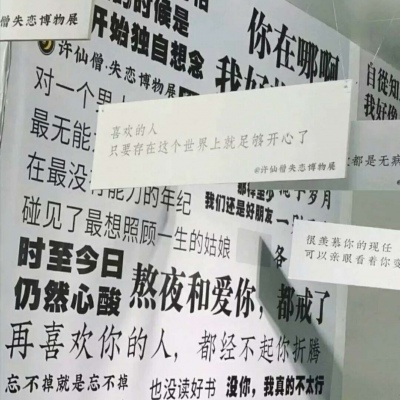 的时候是
开始独自想念
你在哪啊
许仙僧·失恋博物展
僧失恋博物展
自從知
我好像
喜欢的人
只要存在这个世界上就足够开心了
@许仙僧失恋博物展
对一个男
最无能
在最没有能力的年纪
碰见了最想照顾一生的姑娘
我们还是好朋友
都是无病
很羡慕你的现任
可以亲眼看着你变
时至今日
仍然心酸
熬夜和爱你，都戒了
再喜欢你的人，都经不起你折腾
忘不掉就是忘不掉
也没读好书
没你，我真的不太行